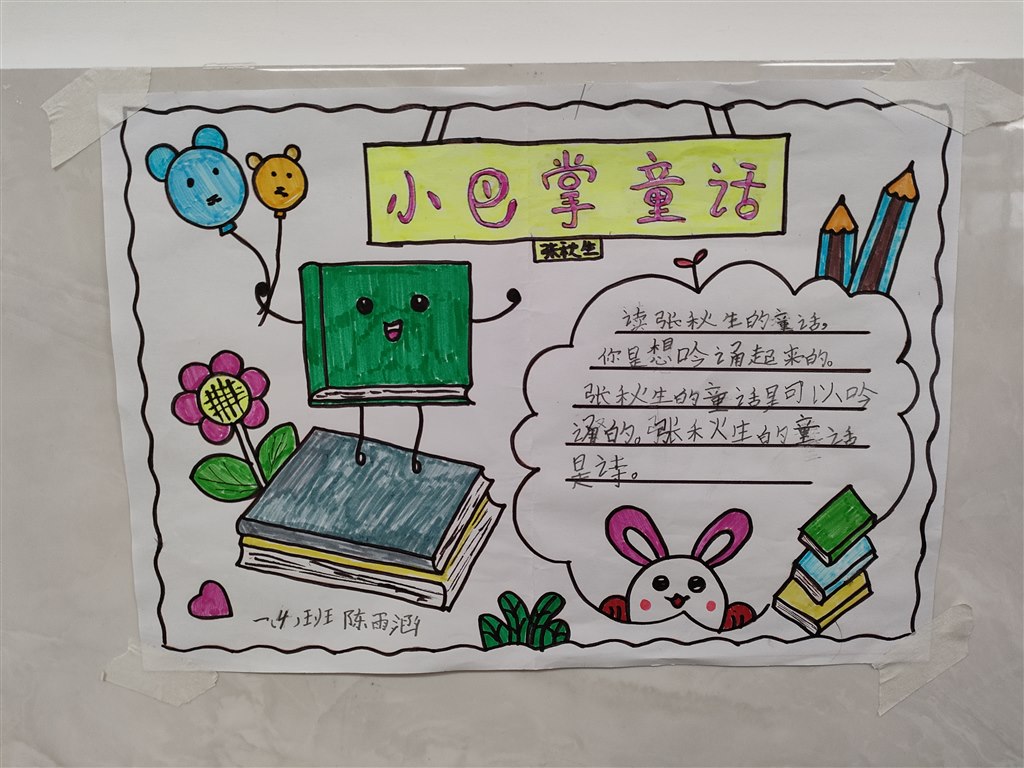 小巴掌童话
张秋生
读张秋生的童话，
你是想吟诵起来的。
张秋生的童话是可以吟
诵的。张秋生的童话
是诗。
一(4)班 陈雨涵